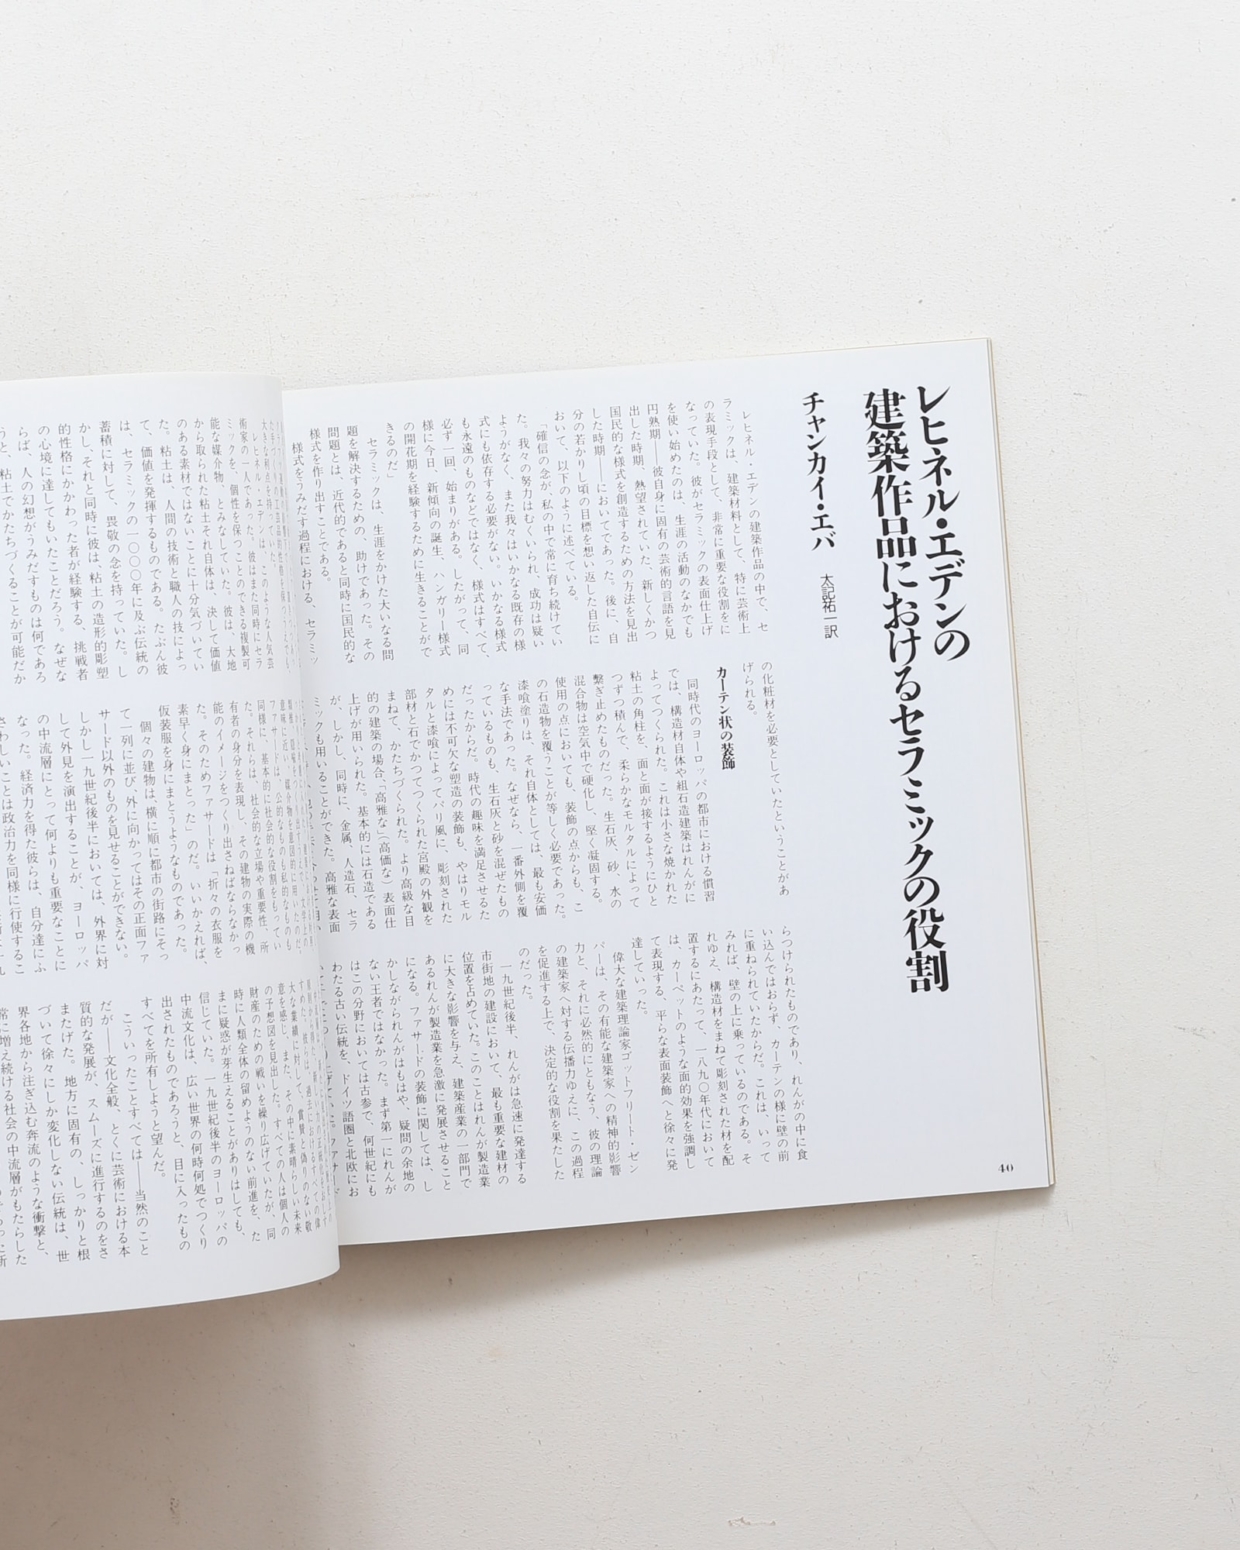 レヒネル・エデンの
建築作品におけるセラミックの役割
チャンカイ・エバ
太記祐一訳
レヒネル・エデンの建築作品の中で、セ
ラミックは、建築材料として、特に芸術上
の表現手段として、非常に重要な役割をに
なっていた。彼がセラミックの表面仕上げ
を使い始めたのは、生涯の活動のなかでも
円熟期——彼自身に固有の芸術的言語を見
出した時期、熱望されていた、新しくかつ
国民的な様式を創造するための方法を見出
した時期——においてであった。後に、自
分の若かりし頃の目標を想い返した自伝に
おいて、以下のように述べている。
「確信の念が私の中で常に育ち続けてい
た。我々の努力はむくいられ、成功は疑い
ようがなく、また我々はいかなる既存の様
式にも依存する必要がない。いかなる様式
も永遠のものなどではなく、様式はすべて、
必ず一回、始まりがある。したがって、同
様に今日、新傾向の誕生、ハンガリー様式
の開花期を経験するために生きることがで
きるのだ」
セラミックは、生涯をかけた大いなる問
題を解決するための、助けであった。その
問題とは、近代的であると同時に国民的な
様式を作り出すことである。
様式をうみだす過程における、セラミッ
の化粧材を必要としていたということがあ
げられる。
カーテン状の装飾
同時代のヨーロッパの都市における慣習
では、構造材自体や組石造建築はれんがに
よってつくられた。これは小さな焼かれた
粘土の角柱を、面と面が接するようにひと
つずつ積んで、柔らかなモルタルによって
繋ぎ止めたものだった。生石灰、砂、水の
混合物は空気中で硬化し、堅く凝固する。
使用の点においても、装飾の点からも、こ
の石造物を覆うことが等しく必要であった。
漆喰塗りは、それ自体としては、最も安価
な手法であった。なぜなら、一番外側を覆
っているものも、生石灰と砂を混ぜたもの
だったからだ。時代の趣味を満足させるた
めには不可欠な塑造の装飾も、やはりモル
タルと漆喰によってパリ風に、彫刻された
部材と石でかつてつくられた宮殿の外観を
まねて、かたちづくられた。より高級な目
的の建築の場合、「高雅な」（高価な）表面仕
上げが用いられた。基本的には石造である
が、しかし、同時に、金属、人造石、セラ
ミックも用いることができた。高雅な表面
らつけられたものであり、れんがの中に食
い込んではおらず、カーテンの様に壁の前
に重ねられていたからだ。これは、いって
みれば、壁の上に乗っているのである。そ
れゆえ、構造材をまねて彫刻された材を配
置するにあたって、一八九〇年代において
は、カーペットのような面的効果を強調し
て表現する、平らな表面装飾へと徐々に発
達していった。
偉大な建築理論家ゴットフリート・ゼン
パーは、その有能な建築家への精神的影響
力と、それに必然的にともなう、彼の理論
の建築家へ対する伝播力ゆえに、この過程
を促進する上で、決定的な役割を果たした
のだった。
一九世紀後半、れんがは急速に発達する
市街地の建設において、最も重要な建材の
位置を占めていた。このことはれんが製造業
に大きな影響を与え、建築産業の一部門で
あるれんが製造業を急激に発展させること
になる。ファサードの装飾に関しては、し
かしながられんがはもはや、疑問の余地の
ない王者ではなかった。まず第一にれんが
はこの分野においては古参で、何世紀にも
わたる古い伝統を、ドイツ語圏と北欧にお
40
レヒネル・エデンは、このような人気芸
術家の一人であった。彼はまた同時にセラ
ミックを、個性を保つことのできる複製可
能な媒介物、とみなしていた。彼は、大地
から取られた粘土それ自体は、決して価値
のある素材ではないことに十分気づいてい
た。粘土は、人間の技術と職人の技によっ
て、価値を発揮するものである。たぶん彼
は、セラミックの一〇〇〇年に及ぶ伝統の
蓄積に対して、畏敬の念を持っていた。し
かし、それと同時に彼は、粘土の造形的彫塑
的性格にかかわった者が経験する、挑戦者
の心境に達してもいたことだろう。なぜな
らば、人の幻想がうみだすものは何であろ
うと、粘土でかたちづくることが可能だか
ファサードは、公的なものも私的なものも
同様に、基本的に社会的な役割をもってい
た。それらは、社会的な立場や重要性、所
有者の身分を表現し、その建物の実際の機
能のイメージをつくり出さねばならなかっ
た。そのためファサードは「折々の衣服を
素早く身にまとった」のだ。いいかえれば、
仮装服を身にまとうようなものであった。
個々の建物は、横に順に都市の街路にそっ
て一列に並び、外に向かってはその正面ファ
サード以外のものを見せることができない。
しかし一九世紀後半においては、外界に対
して外見を演出することが、ヨーロッパ
の中流層にとって何よりも重要なことに
なった。経済力を得た彼らは、自分達にふ
さわしいことは政治力を同様に行使するこ
意を感じ、また、その中に素晴らしい未来
の予想図を見出した。すべての人は個人の
財産のための戦いを繰り広げていたが、同
時に人類全体の留めようのない前進を、た
まに疑惑が芽生えることがありはしても、
信じていた。一九世紀後半のヨーロッパの
中流文化は、広い世界の何時何処でつくり
出されたものであろうと、目に入ったもの
すべてを所有しようと望んだ。
こういったことすべては——当然のこと
だが——文化全般、とくに芸術における本
質的な発展が、スムーズに進行するのをさ
またげた。地方に固有の、しっかりと根
づいて徐々にしか変化しない伝統は、世
界各地から注ぎ込む奔流のような衝撃と、
常に増え続ける社会の中流層がもたらした